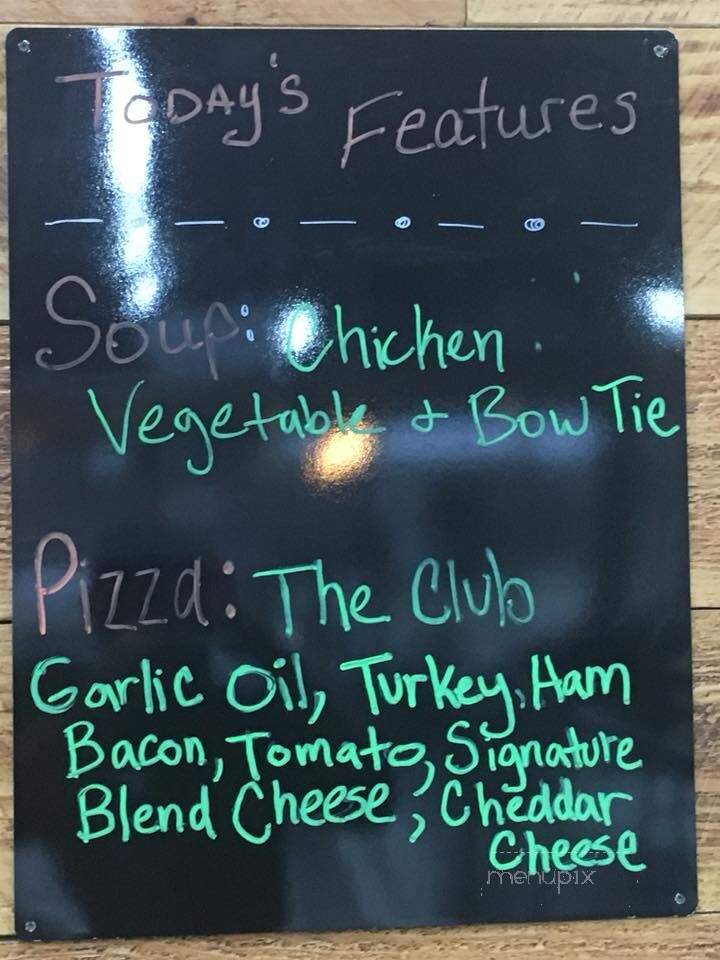 TODAY'S Features
Soup: Chicken
Vegetable & Bow Tie
Pizza: The Club
Garlic Oil, Turkey, Ham
Bacon, Tomato, Signature
Blend Cheese, Cheddar
Cheese
menupix